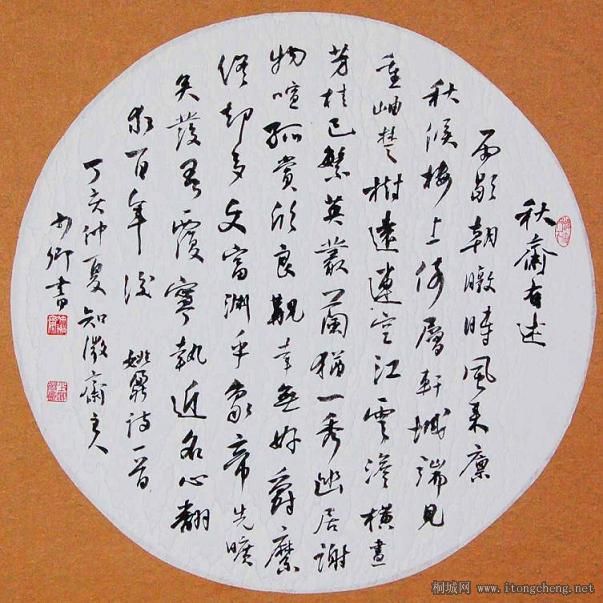 秋齋有述
雨歇朝暾時風来廪
秋候楼上倚層軒城端見
重岫楚樹遠連空江雲澹横晝
芳桂已繁英叢蘭猶一秀幽居謝
物喧孤賞欣良覯幸無好爵縻
却多文富渊乎象帝先曠
矣發吾覆寧執近名心翻
求百年後 姚鼐詩一首
丁亥仲夏知微齋主人
卿書
桐城网 www.itongcheng.net